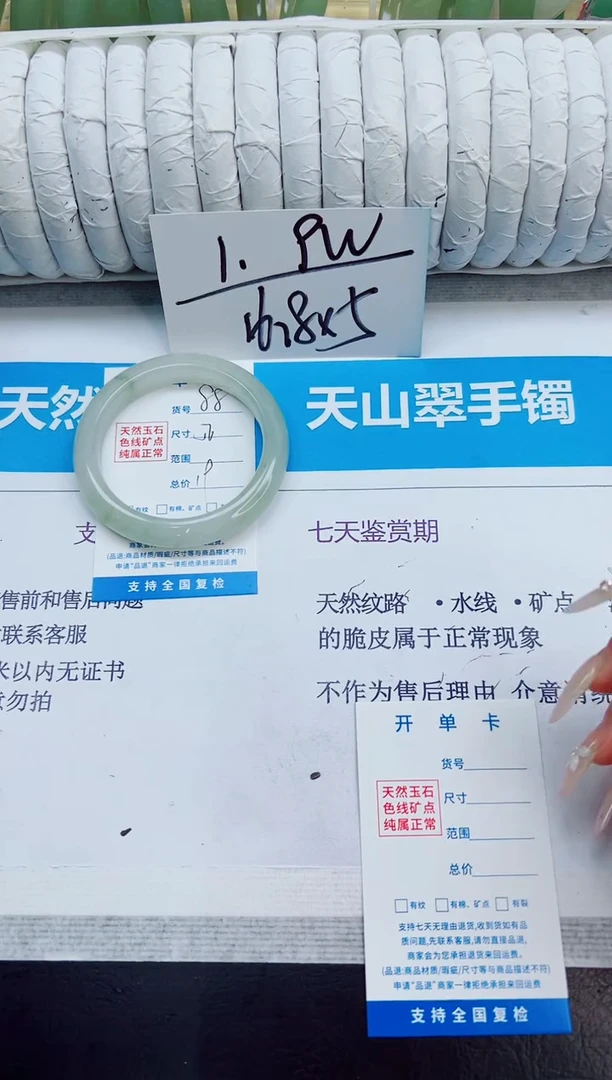 1. PW
天然
天山翠手镯
货号 88
天然玉石
色线矿点
纯属正常
尺寸
范围
总价
有纹 有棉、矿点
(品退:商品材质/瑕疵/尺寸等与商品描述不符)
申请"品退"商家一律拒绝承担来回运费
支持全国复检
支
七天鉴赏期
售前和售后问题
联系客服
米以内无证书
勿拍
天然纹路 ·水线 ·矿点
的脆皮属于正常现象
不作为售后理由 介意
开单卡
货号
天然玉石
色线矿点
纯属正常
尺寸
范围
总价
有纹 有棉、矿点 有裂
支持七天无理由退货,收到货如有品
质问题,先联系客服,请勿直接品退,
商家会为您承担退货来回运费。
(品退:商品材质/瑕疵/尺寸等与商品描述不符)
申请"品退"商家一律拒绝承担来回运费
支持全国复检